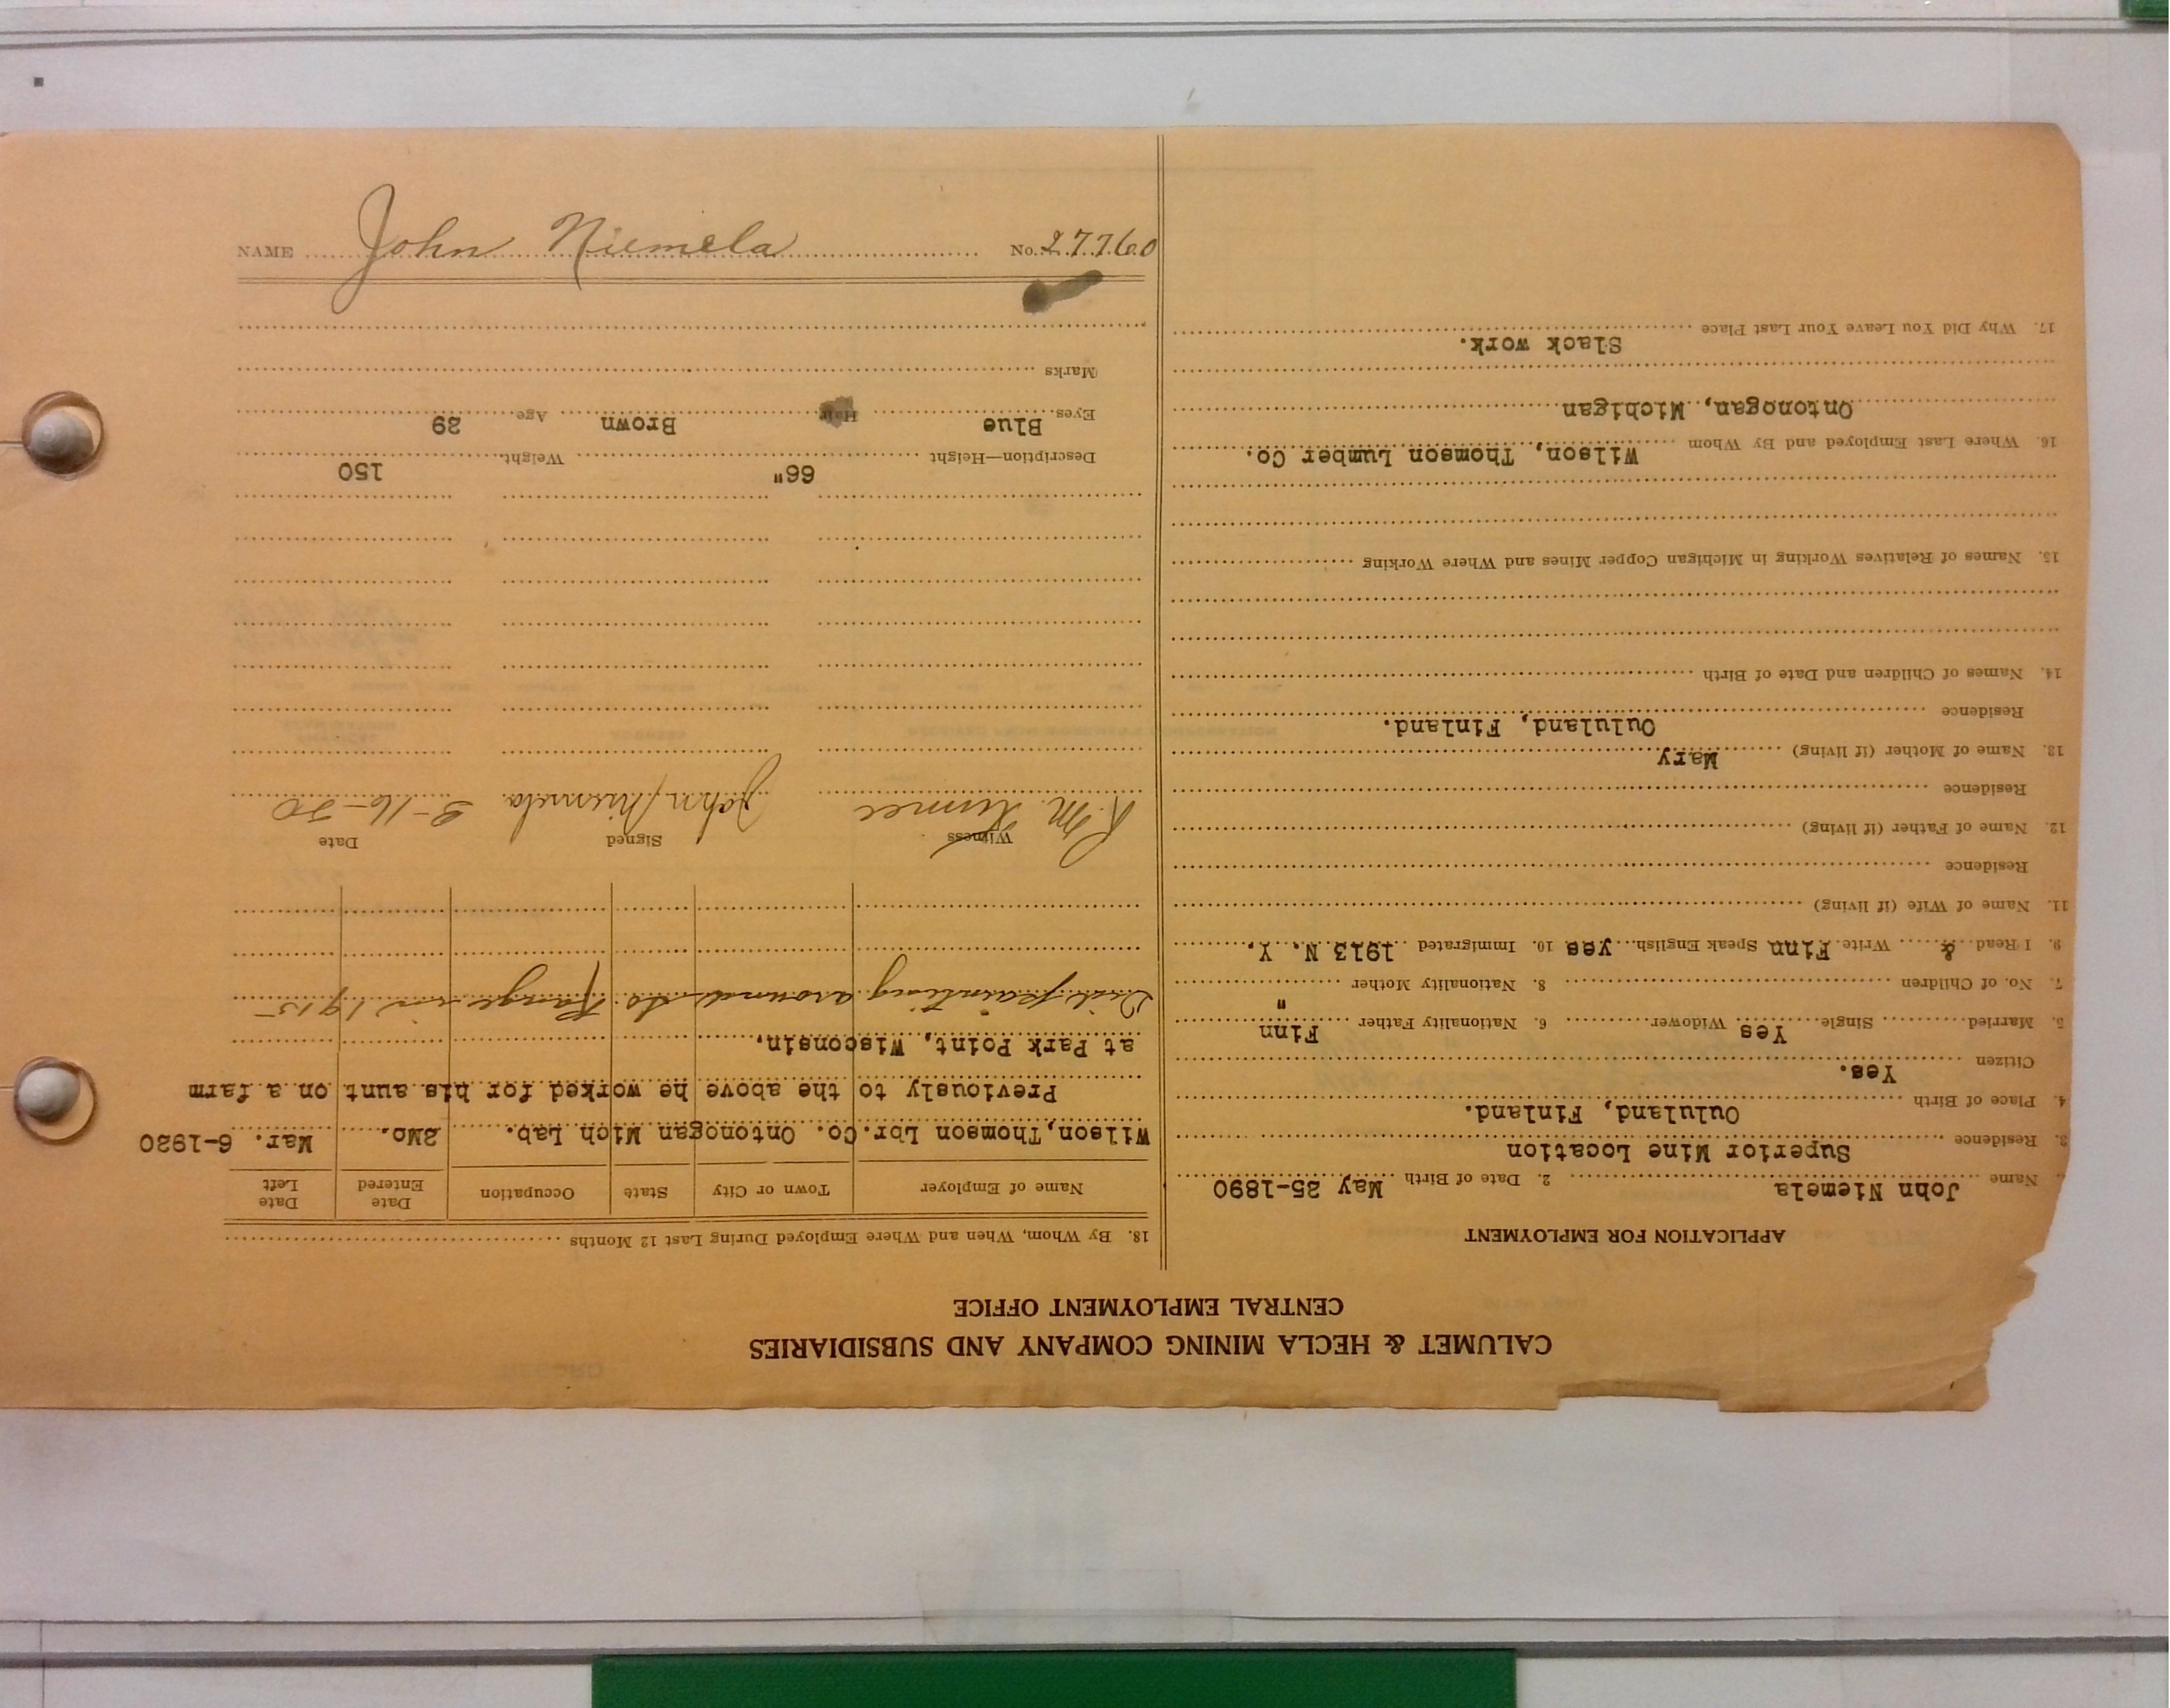 CALUMET & HECLA MINING COMPANY AND SUBSIDIARIES
CENTRAL EMPLOYMENT OFFICE
APPLICATION FOR EMPLOYMENT
Name John Niemela 2. Date of Birth May 25-1890
3. Residence Superior Mine Location
4. Place of Birth Oululand, Finland.
Citizen Yes.
5. Married Single Yes Widower 6. Nationality Father Finn
7. No. of Children 8. Nationality Mother "
9. I Read & Write Finn Speak English yes 10. Immigrated 1913 N. Y.
11. Name of Wife (if living)
Residence
12. Name of Father (if living)
Residence
13. Name of Mother (if living) Mary
Residence Oululand, Finland.
14. Names of Children and Date of Birth
15. Names of Relatives Working in Michigan Copper Mines and Where Working
16. Where Last Employed and By Whom Wilson, Thomson Lumber Co.
Ontonogan, Michigan
17. Why Did You Leave Your Last Place
Slack work.
18. By Whom, When and Where Employed During Last 12 Months
Name of Employer Town or City State Occupation Date Entered Date Left
Wilson,Thomson Lbr.Co. Ontonogan Mich Lab. 2Mo. Mar. 6-1920
Previously to the above he worked for his aunt on a farm
at Park Point, Wisconsin.
Did painting around So. Range in 1915
Witness Signed Date
R. M. John Niemela 3-16-20
Description—Height 66" Weight 150
Eyes Blue Hair Brown Age 29
Marks
NAME John Niemela No. 27760